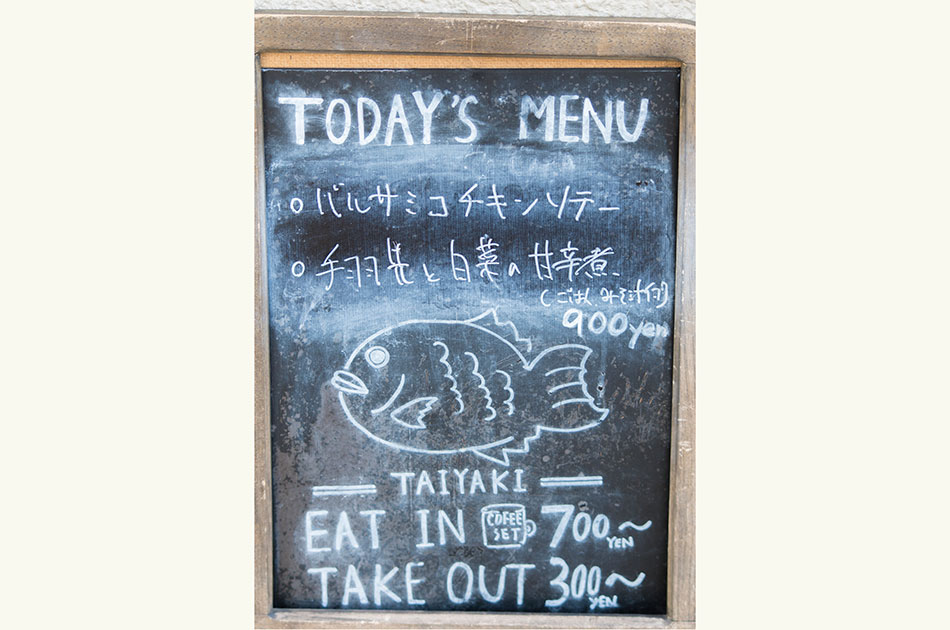 TODAY'S MENU
○ バルサミコチキンソテー
○ 手羽先と白菜の甘辛煮
(ごはん、みそ汁付)
900yen
TAIYAKI
EAT IN COFEE SET 700 YEN～
TAKE OUT 300 YEN～